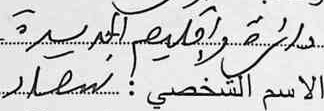 دائرة وإقليم الجديدة
الاسم الشخصي : سعاد